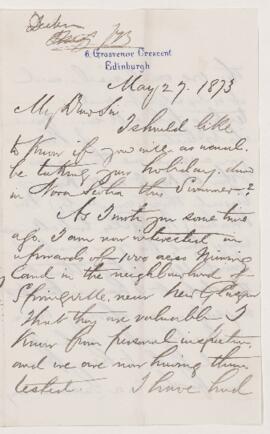 6 Grosvenor Crescent
Edinburgh
May 27. 1873
My Dear Sir
I should like
to know if you will as usual
be taking your holiday
in Nova Scotia this Summer?
As I wrote you some time
ago. I am now interested in
upwards of 1000 acres Mining
Land in the neighbourhood of
Springville, near New Glasgow
That they are valuable I
know from personal inspection
and we are now having them
tested. I have had